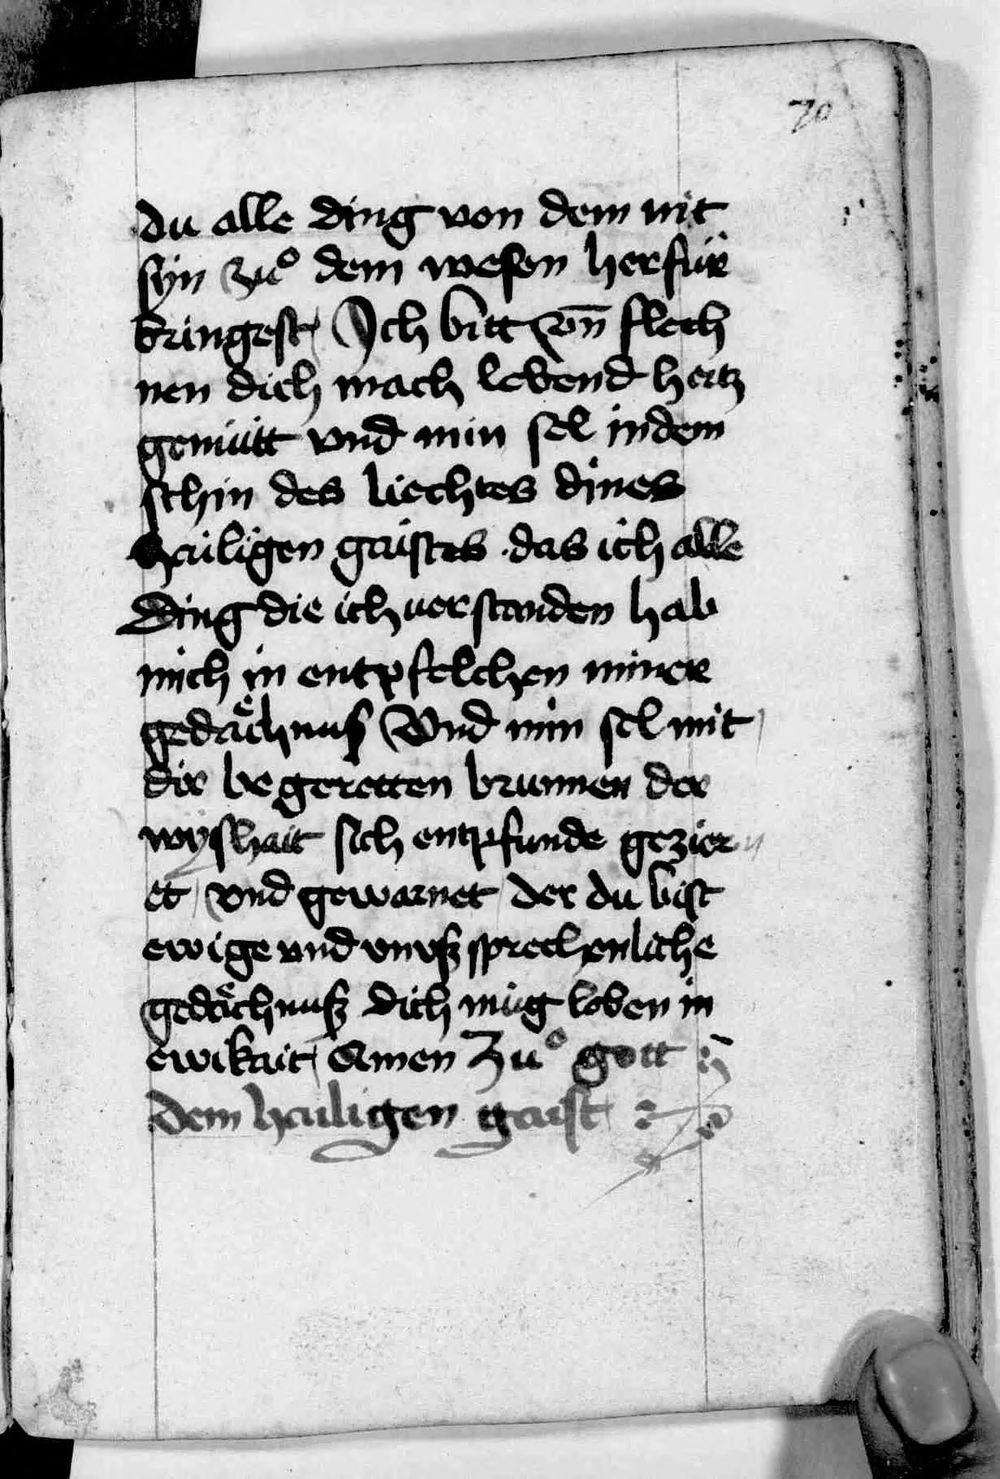 70
du alle ding von dem nit
syn zuͦ dem wesen herfür
bringest Ich bitt vn̄ flech
nen dich mach lebend hertz
gemütt vnd min sel in dem
schin des liechtes dines
hailigen gaistes ·das ich alle
ding die ich uerstanden hab
mich in entpfelchen miner
gedaͤchnuß Vnd min sel mit
dir begeretten brunnen der
wyßhait sich entpfunde gezier
et vnd gewarnet der du bist
ewige vnd vnusz sprechenliche
gedaͤchnusz dich müg loben in
ewikait Amen Zuͦ gott
dem hailigen gaist